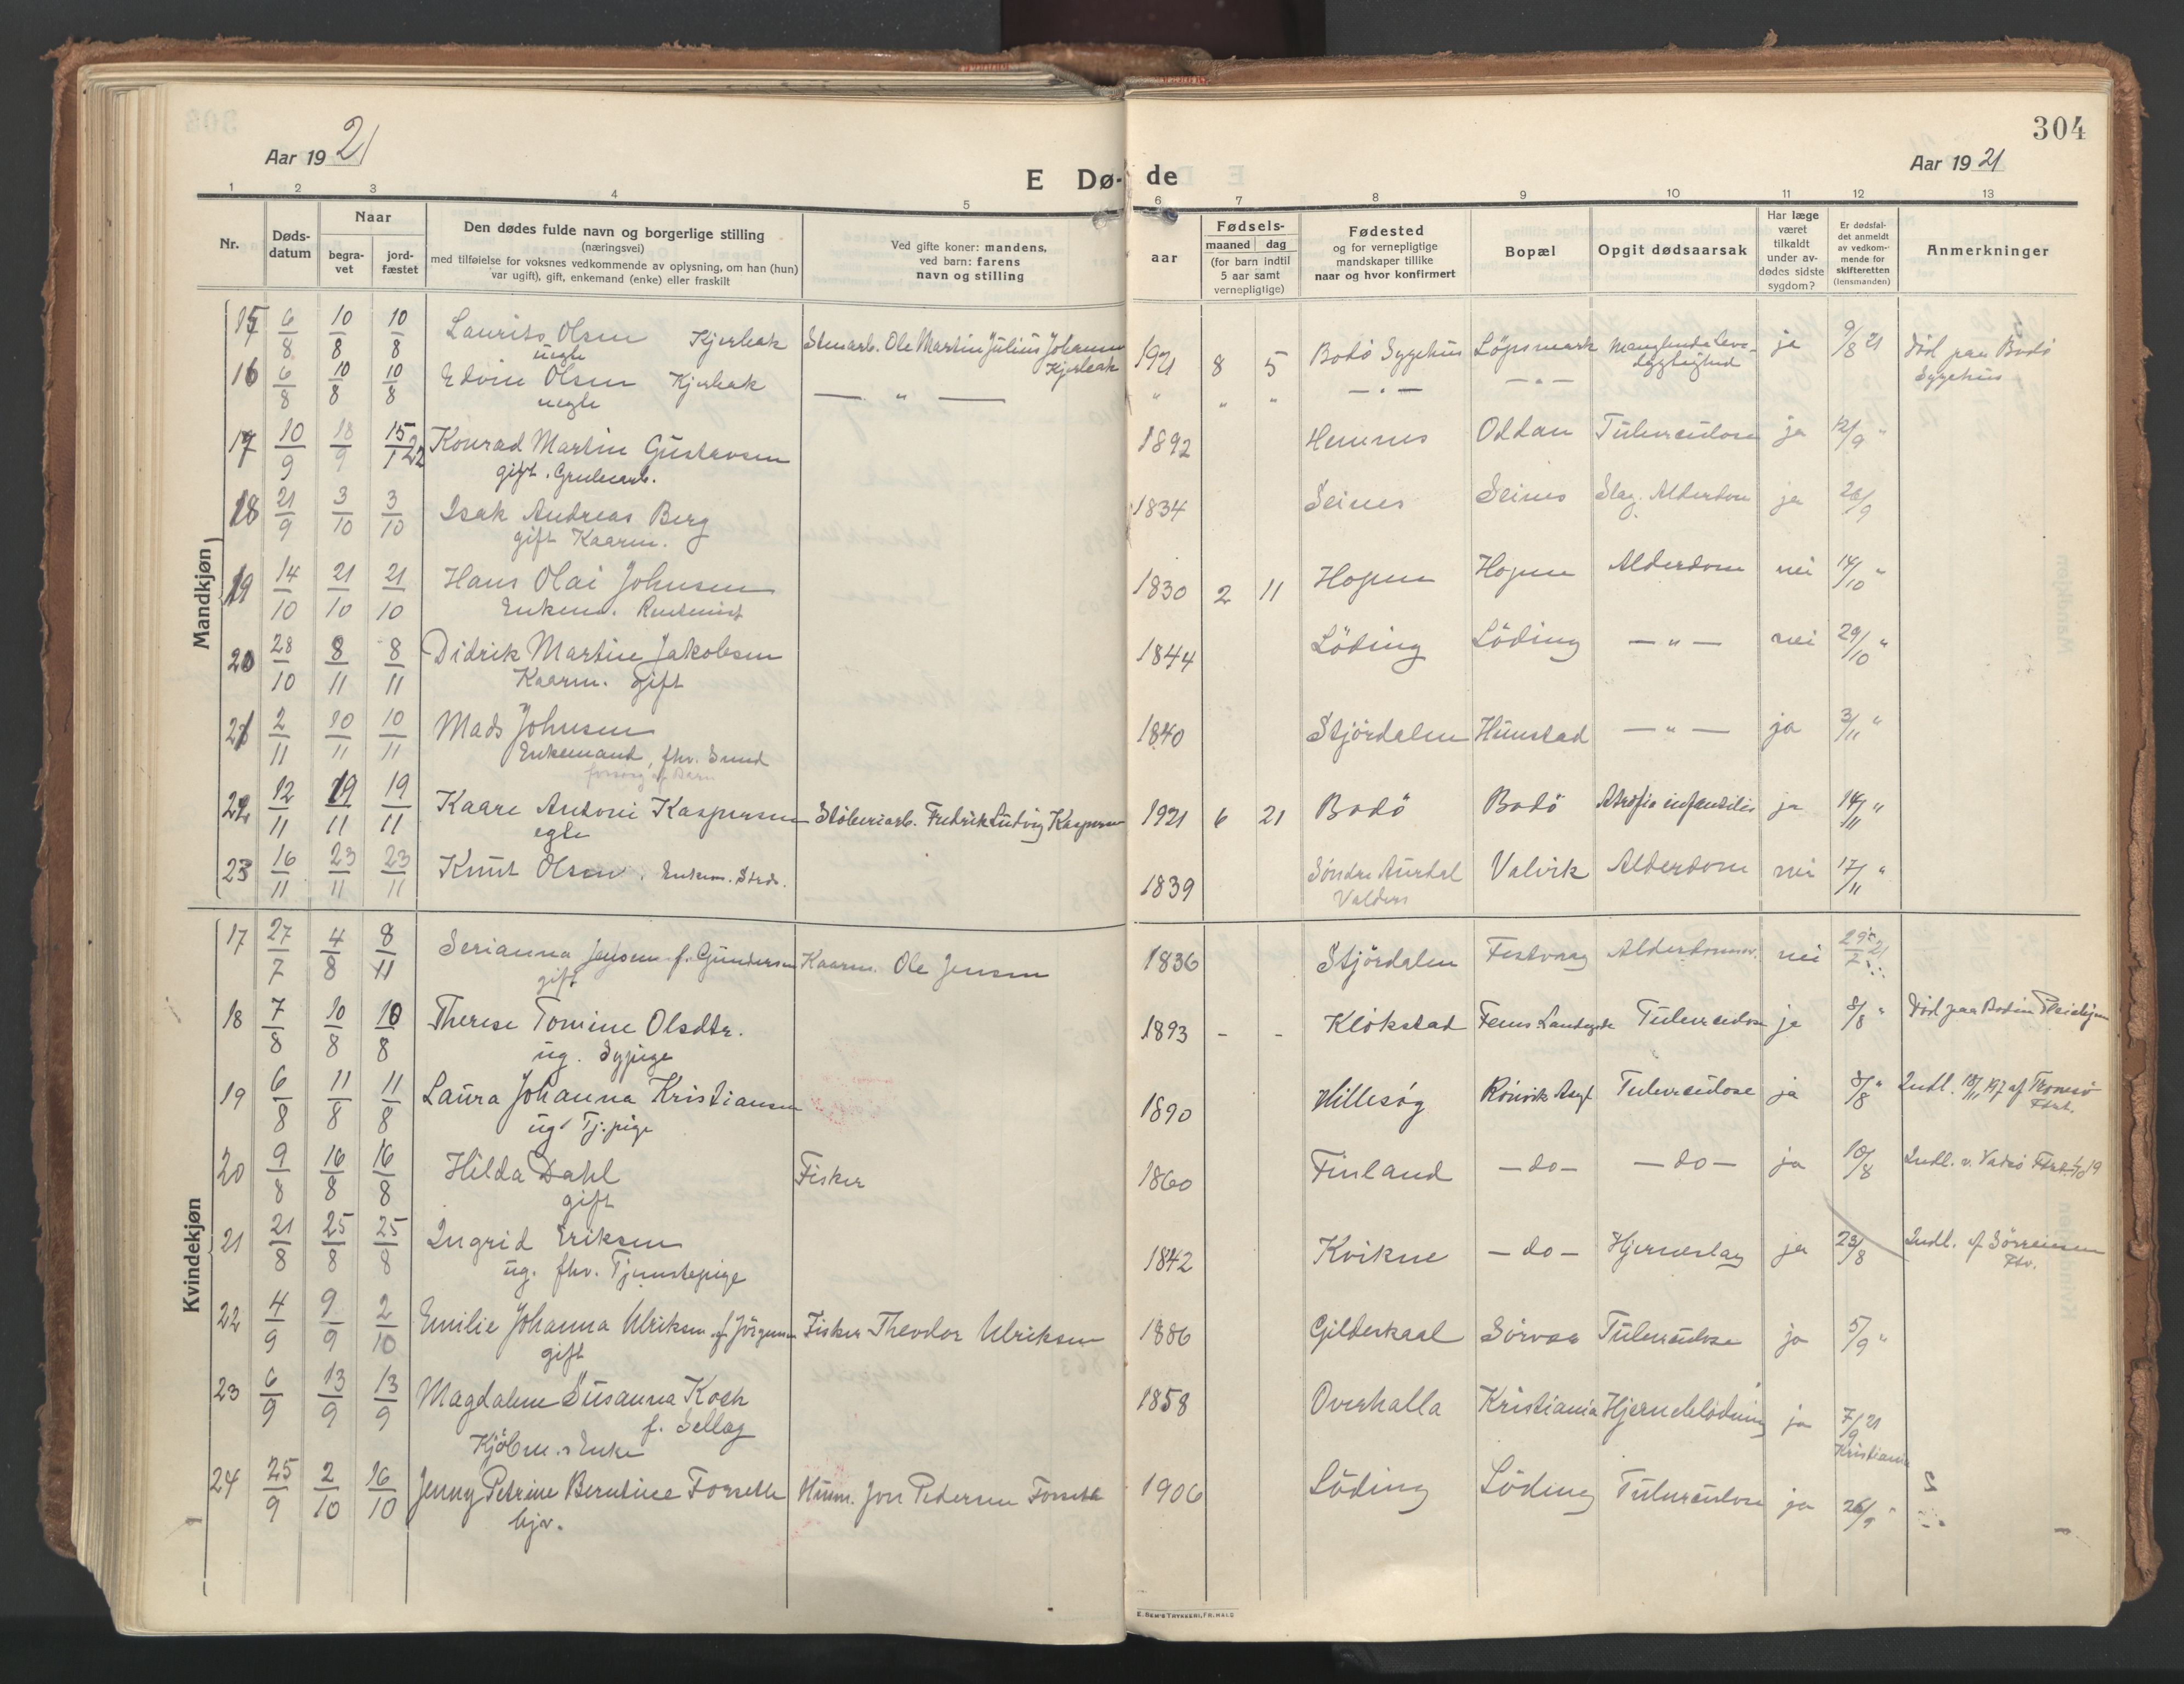 304
Aar 1921
E Dø-
de
Aar 1921
1 2 3 4 5 6 7 8 9 10 11 12 13
Nr.
Døds-
datum
Naar
begra-
vet
jord-
fæstet
Den dødes fulde navn og borgerlige stilling
(næringsvei)
med tilføielse for voksnes vedkommende av oplysning, om han (hun)
var ugift), gift, enkemand (enke) eller fraskilt
Ved gifte koner: mandens,
ved barn: farens
navn og stilling
aar
Fødsels-
maaned dag
(for barn indtil
5 aar samt
vernepligtige)
Fødested
og for vernepligtige
mandskaper tillike
naar og hvor konfirmert
Bopæl
Opgit dødsaarsak
Har læge
været
tilkaldt
under av-
dødes sidste
sygdom?
Er dødsfal-
det anmeldt
av vedkom-
mende for
skifteretten
(lensmanden)
Anmerkninger
Mandkjøn
15 6/8 10/8 10/8 Laurits Olsen Kjerleak Stenarb. Ole Martin Julius Johannes 1921 8 5 Bodö Sygehus Löpsmark Manglende Leve- ja 9/8 21 Död paa Bodö
uegte Kjerleak dygtighed Sygehus
16 6/8 10/8 10/8 Edvin Olsen Kjerleak — " — " " " — " — — " —
uegte
17 10/9 18/9 15/1 22 Konrad Martin Gustavsen 1892 Hemnes Oddan Tuberculose ja 12/9 "
gift. Grubearb.
18 21/9 3/10 3/10 Isak Andreas Berg 1834 Seines Seines Slag. Alderdom ja 26/9
gift Kaarm.
19 14/10 21/10 21/10 Hans Olai Johnsen 1830 2 11 Hopen Hopen Alderdom nei 14/10 "
Enkem. Rentenist
20 28/10 8/11 8/11 Didrik Martin Jakobsen 1844 Löding Löding — " — nei 29/10 "
Kaarm. gift
21 2/11 10/11 10/11 Mads Johnsen 1840 Stjördalen Hunstad — " — ja 3/11 "
Enkemand, fhv. Smed
forsörg af Barn
22 12/11 19/11 19/11 Kaare Antoni Kaspersen Stöberiarb. Fredrik Ludvig Kaspersen 1921 6 21 Bodö Bodö Atrofia infantilis ja 14/11 "
egte
23 16/11 23/11 23/11 Knut Olsen. Enkem. 1839 Söndre Aurdal Valvik Alderdom nei 17/11 "
Valders
Kvindekjøn
17 27/7 4/8 8/11 Serianna Jensen f. Gundersen Kaarm. Ole Jensen 1836 Stjördalen Festvaag nei 29/7 21
gift
18 7/8 10/8 10/8 Therese Tomine Olsdtr. 1893 - - Klökstad Fenes Landegode Tuberculose ja 8/8 " Död paa Bodin Pleiehjem
ug. Sypige
19 6/8 11/8 11/8 Laura Johanna Kristiansen 1890 Hillesög Rönvik Asyl Tuberculose ja 8/8 " Indl. 18/11 197 af Tromsö
ug. Tj.pige Fsrk.
20 9/8 16/8 16/8 Hilda Dahl Fisker 1860 Finland — do — — do — ja 10/8 Indl. v. Vadsö
gift
21 21/8 25/8 25/8 Ingrid Eriksen 1842 Kvikne — do — Hjerneslag ja 23/8 Indl. af Sörreisen
ug. fhv. Tjenestepige Fsv.
22 4/9 9/9 2/10 Emilie Johanna Ulriksen f. Jörgensen Fisker Theodor Ulriksen 1886 Gildeskaal Sörvaa Tuberculose ja 5/9 "
gift
23 6/9 13/9 13/9 Magdalene Susanna Koch 1858 Overhalla Kristiania Hjerneblödning ja 7/9 21
f. Sellæg Kristiania
Kjöbm.s Enke
24 25/9 2/10 16/10 Jenny Petrine Berntine Forseth Husm. Jon Pedersen Forseth 1906 Löding Löding Tuberculose ja 26/9 "
hjv.
E. SEM'S TRYKKERI, FR.HALD